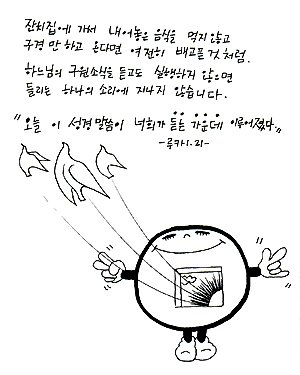 잔치집에 가서 내어놓은 음식을 먹지않고
구경만 하고 온다면 여전히 배고플 것처럼.
하느님의 구원소식을 듣고도 실행하지 않으면
들리는 하나의 소리에 지나지 않습니다.
"오늘 이 성경 말씀이 너희가 듣는 가운데 이루어졌다"
-루카1.21-